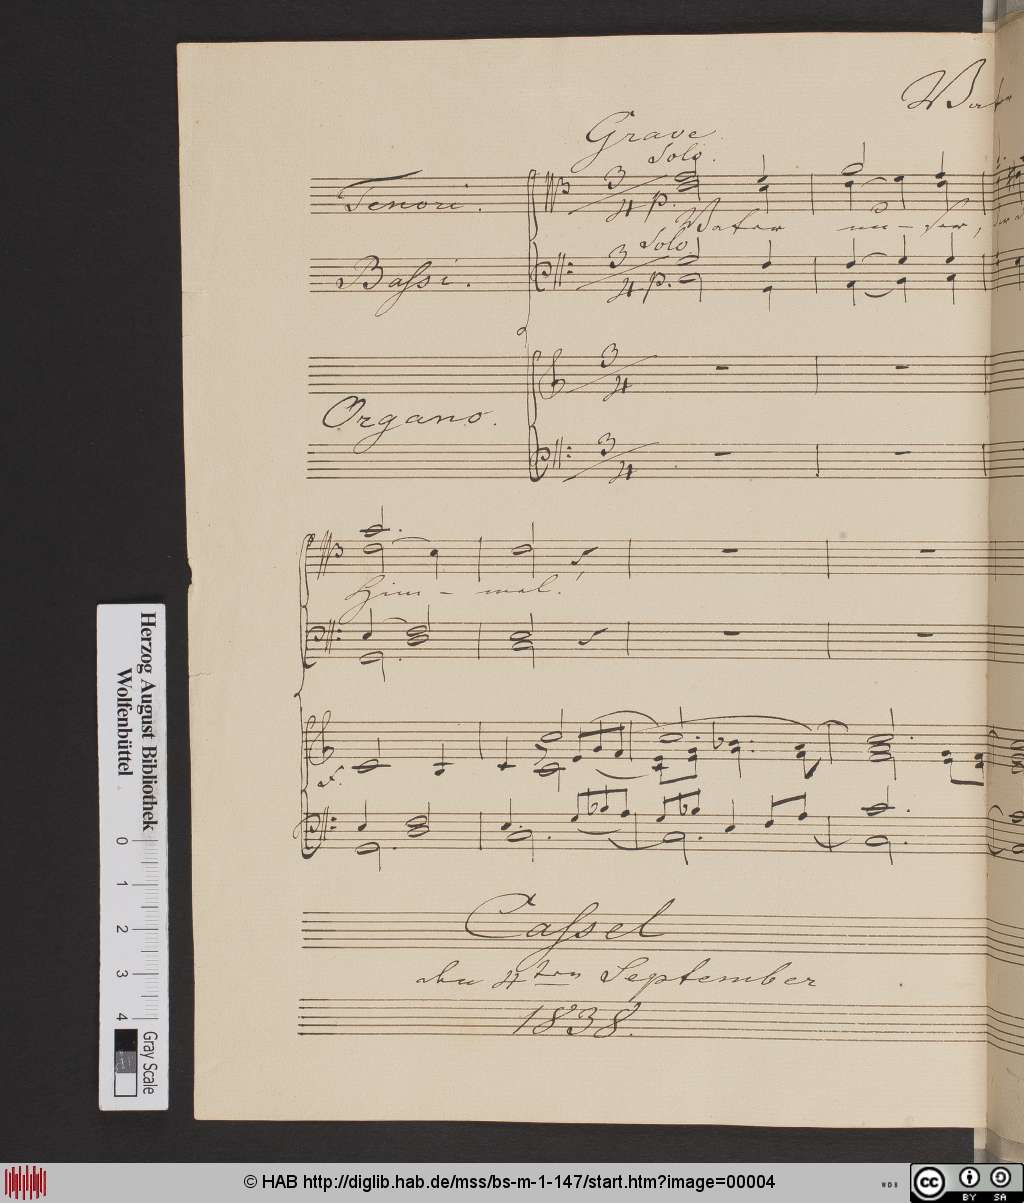 Grave.
Solo.
Tenori.
3
4 p.
Vater un-ser,
Solo.
Bassi.
3
4 p.
3
4
Organo.
3
4
Him - mel!
f.
Cassel
den 4ten September
1838.
Herzog August Bibliothek
Wolfenbüttel
0 1 2 3 4
Gray Scale
© HAB http://diglib.hab.de/mss/bs-m-1-147/start.htm?image=00004
WDB
cc
BY SA